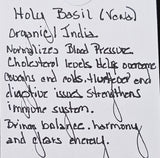 Holy Basil (Vana)
Organic / India
Normalizes Blood Pressure
Cholesterol levels. Helps overcome
coughs and colds. Hunger and
digestive issues strengthens
immune system.
Brings balance, harmony
and clears energy.